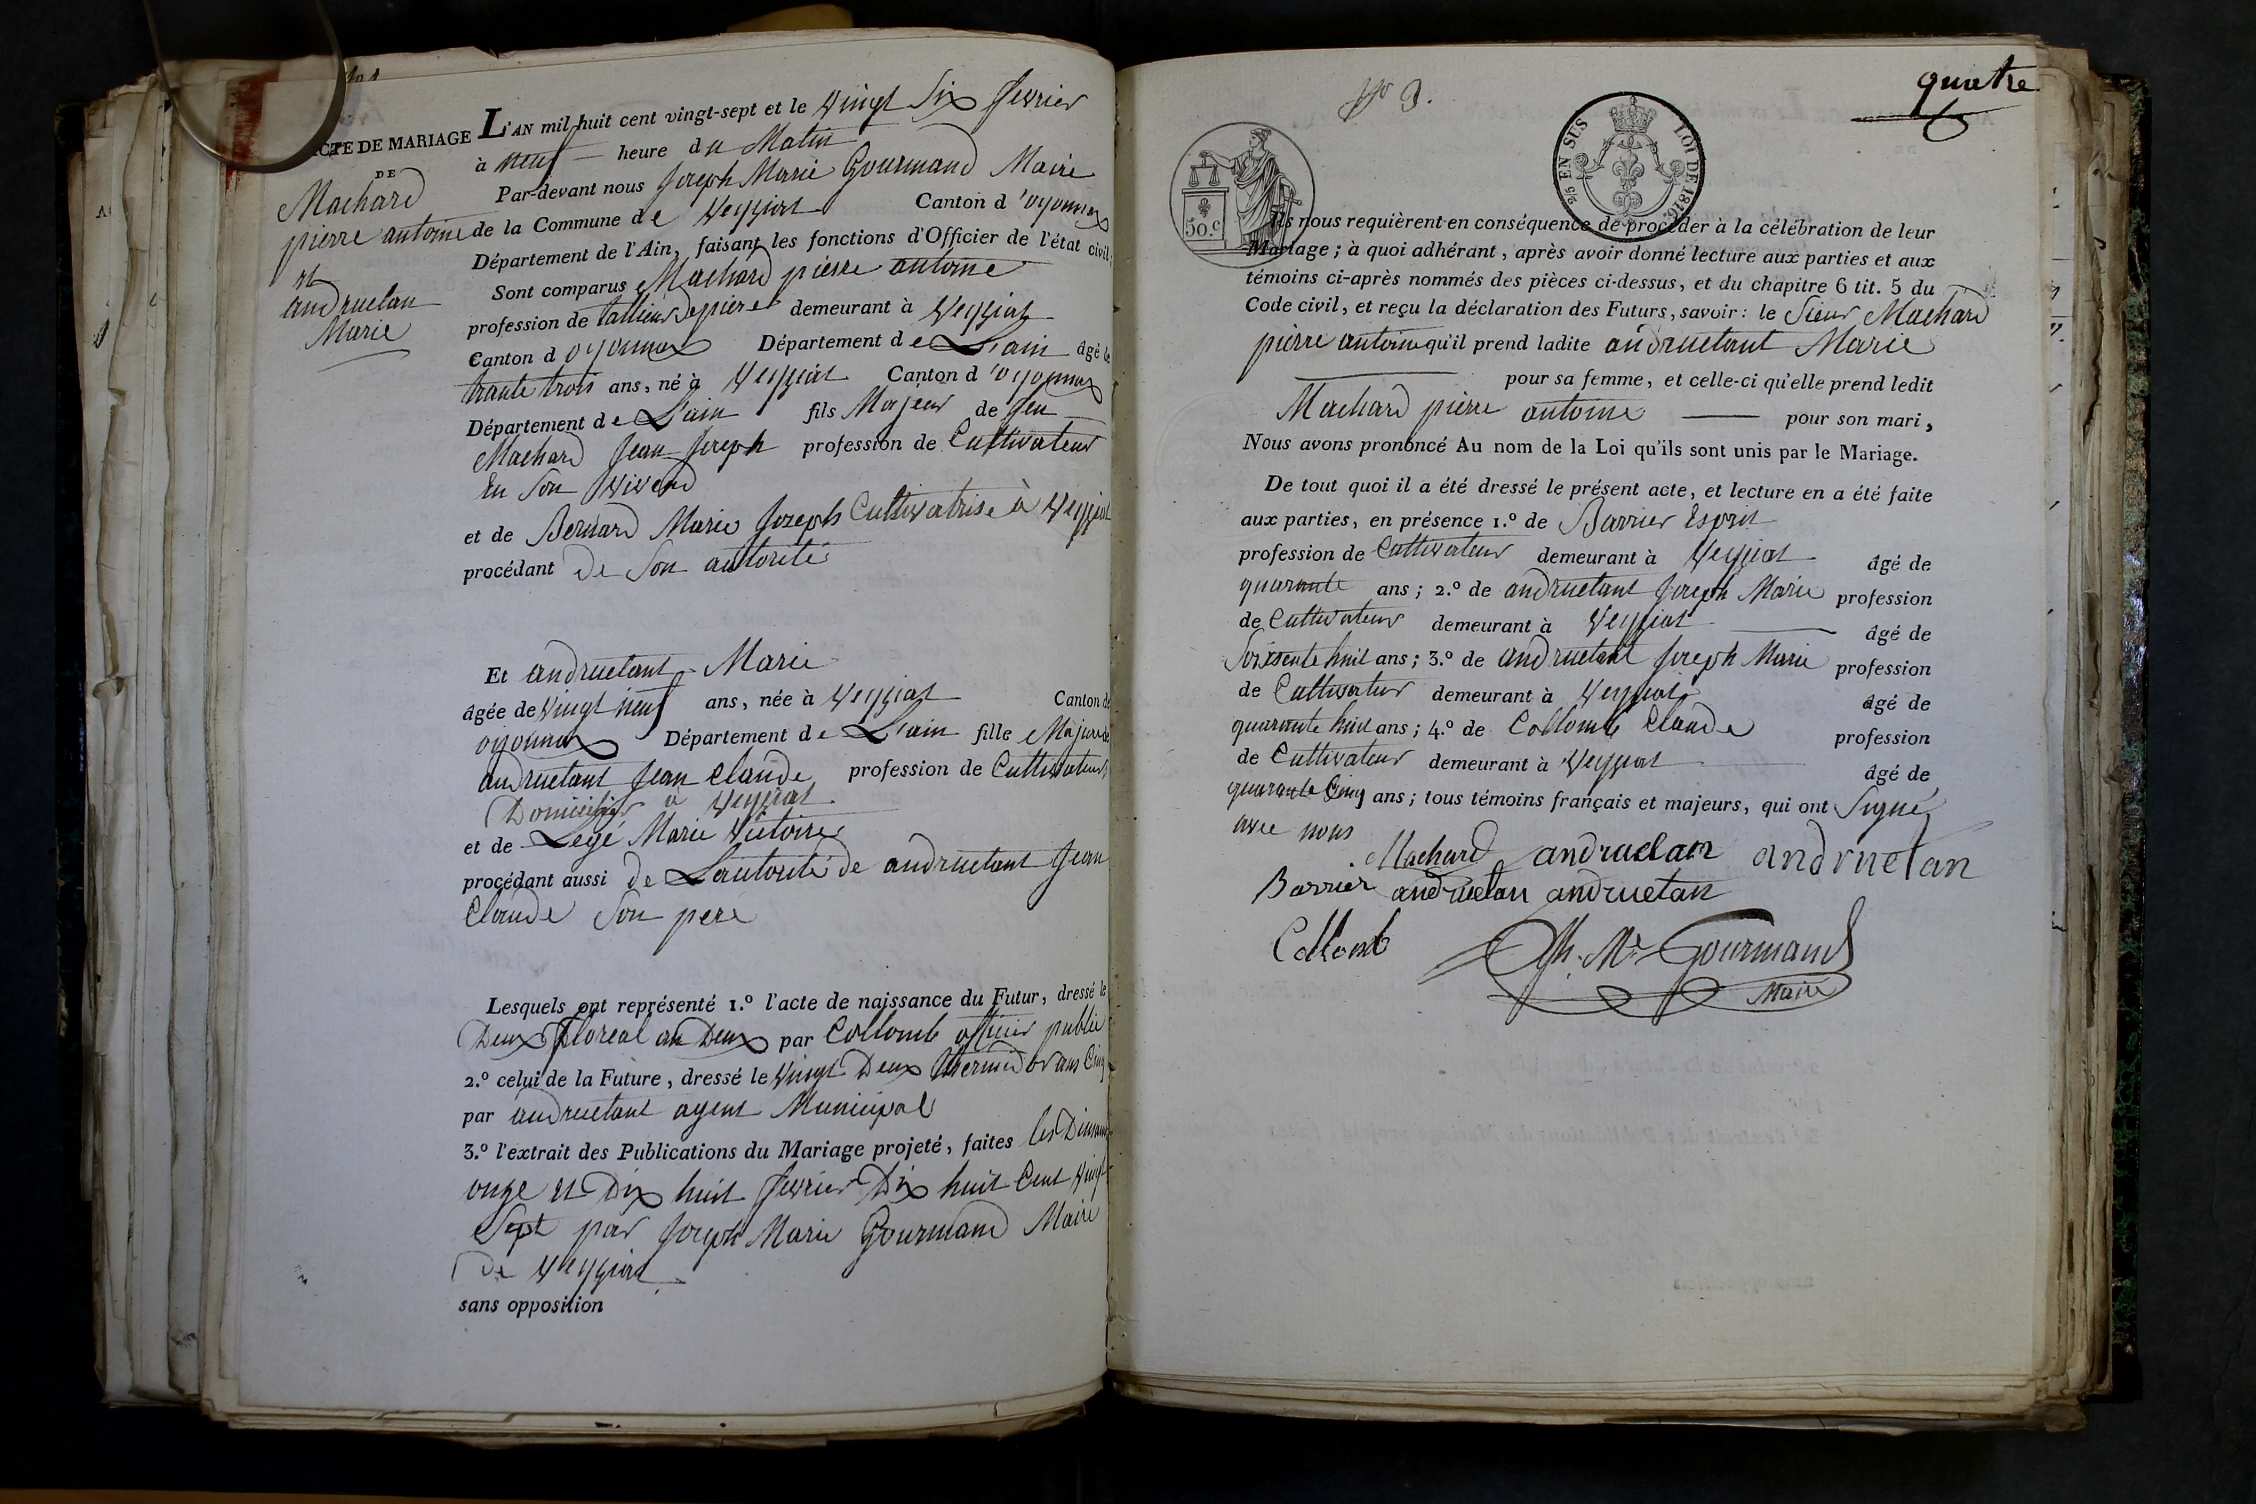 ACTE DE MARIAGE
DE
Machard
pierre antoine
et
andruetan
Marie
L'AN mil huit cent vingt-sept et le vingt Six fevrier
à neuf heure du Matin
Par-devant nous Joseph Marie Gourmand Maire
de la Commune de Veyziat Canton d'oyonnax
Département de l'Ain, faisant les fonctions d'Officier de l'état civil
Sont comparus Machard pierre antoine
profession de tallieur de pierre demeurant à Veyziat
Canton d oyonnax Département de L'ain âgé de
trante trois ans, né à Veyziat Canton d'oyonnax
Département de L'ain fils Majeur de feu
Machard Jean Joseph profession de Cultivateur
En Son vivend
et de Bernard Marie Jozeph Cultivatrise à Veyziat
procédant de Son autorité
Et andruetant Marie
âgée de vingt neuf ans, née à Veyziat Canton de
oyonnax Département de L'ain fille Majeure de
andruetant Jean Claude profession de Cultivateur
Domicilier à Veyziat
et de Legé Marie Victoire
procédant aussi de L'autorité de andruetant Jean
Claude Son pere
Lesquels ont représenté 1.º l'acte de naissance du Futur, dressé le
Deux floréal an Deux par Collomb officier public
2.º celui de la Future, dressé le vingt Deux thermidor ans Cinq
par andruetant agent Municipal
3.º l'extrait des Publications du Mariage projeté, faites les
onze et Dix huit fevrier Dix huit Cent vingt
Sept par Joseph Marie Gourmand Maire
de Veyziat
sans opposition
Nº 3.
quatre
50.c
2/5 EN SUS LOI DE 1816.
Ils nous requièrent en conséquence de procéder à la célébration de leur
Mariage; à quoi adhérant, après avoir donné lecture aux parties et aux
témoins ci-après nommés des pièces ci-dessus, et du chapitre 6 tit. 5 du
Code civil, et reçu la déclaration des Futurs, savoir: le Sieur Machard
pierre antoine qu'il prend ladite andruetant Marie
pour sa femme, et celle-ci qu'elle prend ledit
Machard pierre antoine pour son mari,
Nous avons prononcé Au nom de la Loi qu'ils sont unis par le Mariage.
De tout quoi il a été dressé le présent acte, et lecture en a été faite
aux parties, en présence 1.º de Barrier Esprit
profession de Cultivateur demeurant à Veyziat âgé de
quarante ans; 2.º de andruetant Joseph Marie profession
de Cultivateur demeurant à Veyziat âgé de
Soixsente huit ans; 3.º de andruetant Joseph Marie profession
de Cultivateur demeurant à Veyziat âgé de
quarante huit ans; 4.º de Collomb Claude profession
de Cultivateur demeurant à Veyziat âgé de
quarante Cinq ans; tous témoins français et majeurs, qui ont Signé
avec nous
Machard andruetan andruetan
Barrier andruetan andruetan
Collomb Jh. Me Gourmand
Maire